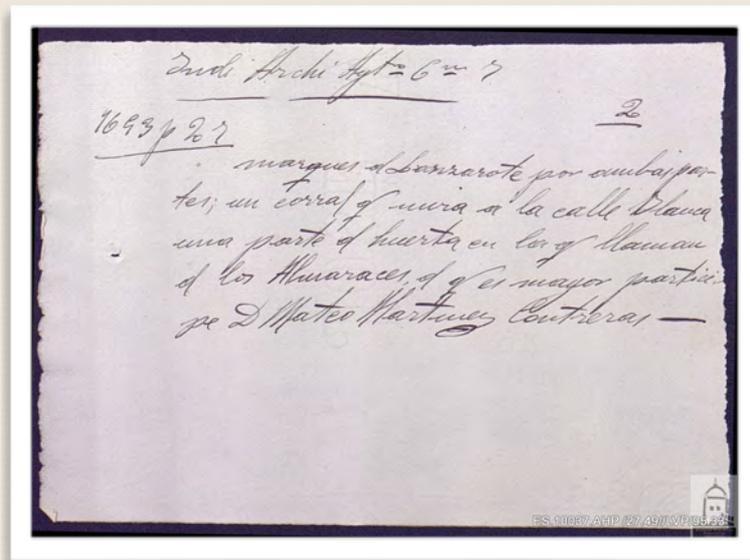 Indi Archi Aytº Cª 7
2
1693 p 27
marques d Lanzarote por ambas par-
tes; un corral q mira a la calle Blanca
una parte d huerta en la q llaman
d los Almaraces, d q es mayor partici-
pe D Mateo Martinez Contreras —
ES.10037.AHP